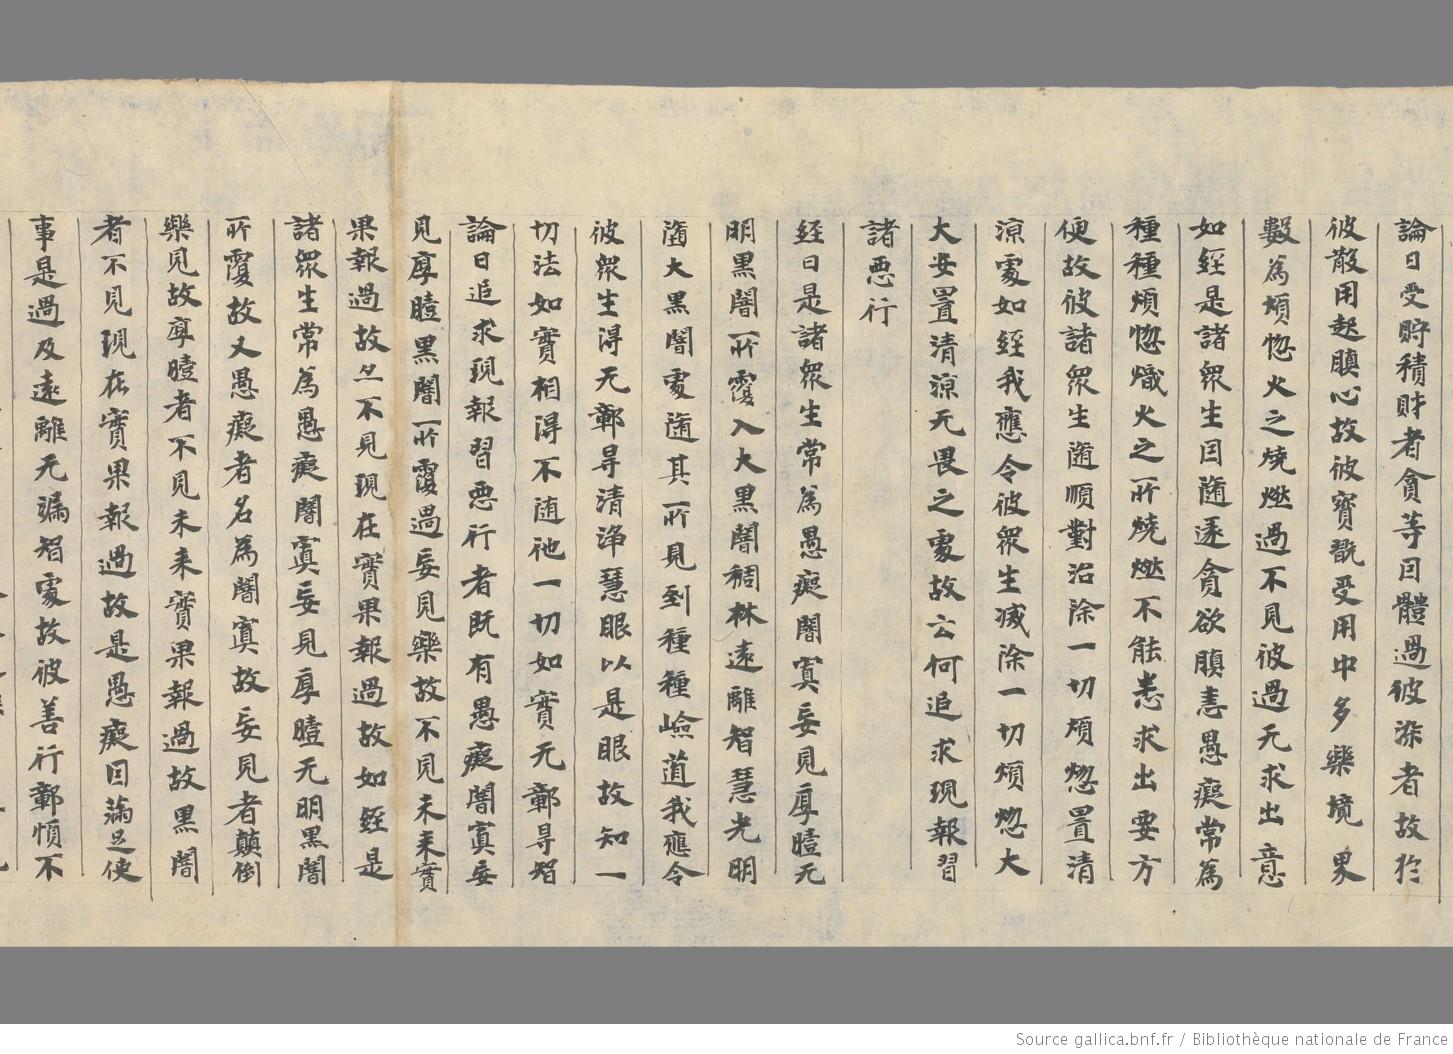 論曰受貯積財者貪等因體過彼染者故於
彼散用起瞋心故彼寶翫受用中多樂境界
數為煩惚火之燒燃過不見彼過无求出意
如經是諸眾生因隨逐貪欲瞋恚愚癡常為
種種煩惚熾火之所燒燃不能志求出要方
便故彼諸眾生隨順對治除一切煩惚置清
涼處如經我應令彼眾生滅除一切煩惚大
火安置清涼无畏之處故云何追求現報習
諸惡行
經曰是諸眾生常為愚癡闇冥妄見厚曀无
明黑闇所覆入大黑闇稠林遠離智慧光明
墮大黑闇處隨其所見到種種嶮道我應令
彼眾生得无鄣导清淨慧眼以是眼故知一
切法如實相得不随他一切如實无鄣导智
論曰追求現報習惡行者既有愚癡闇冥妄
見厚曀黑闇所覆過妄見樂故不見未来實
果報過故亦不見現在實果報過故如經是
諸眾生常為愚癡闇冥妄見厚曀无明黑闇
所覆故又愚癡者名為闇冥故妄見者顛倒
樂見故厚曀者不見未来實果報過故黑闇
者不見現在實果報過故是愚癡因滿足使
事是過及遠離无漏智處故彼善行鄣憤不